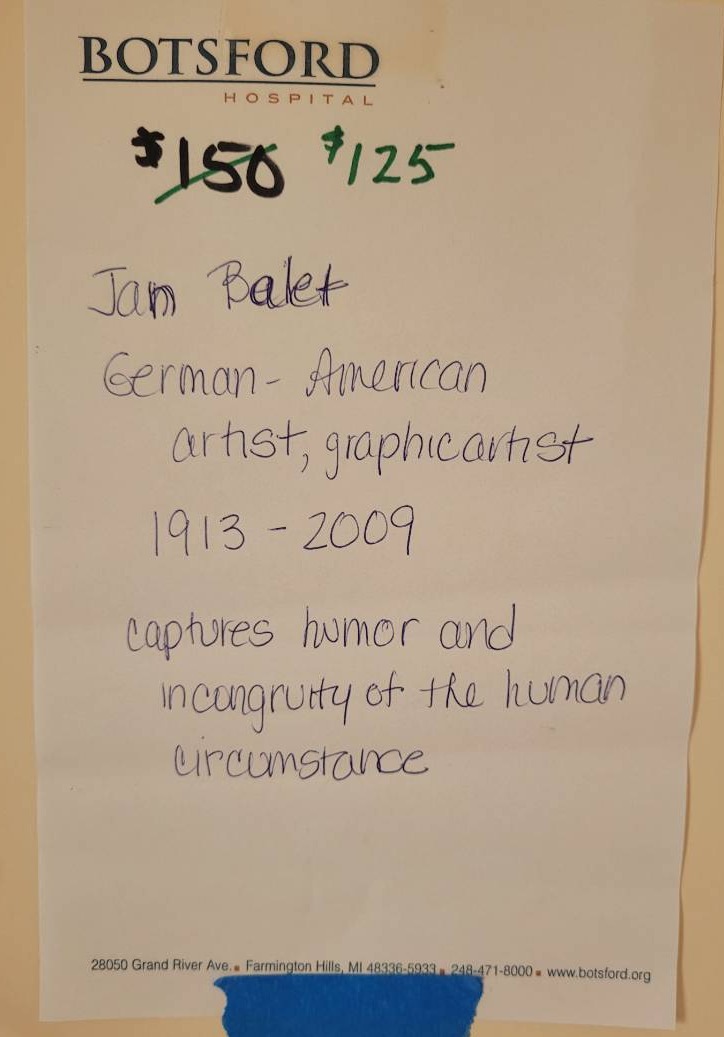 BOTSFORD
HOSPITAL
$150 $125
Jan Balet
German-American
artist, graphic artist
1913-2009
captures humor and
incongruity of the human
circumstance
28050 Grand River Ave. ▪ Farmington Hills, MI 48336-5933 ▪ 248-471-8000 ▪ www.botsford.org